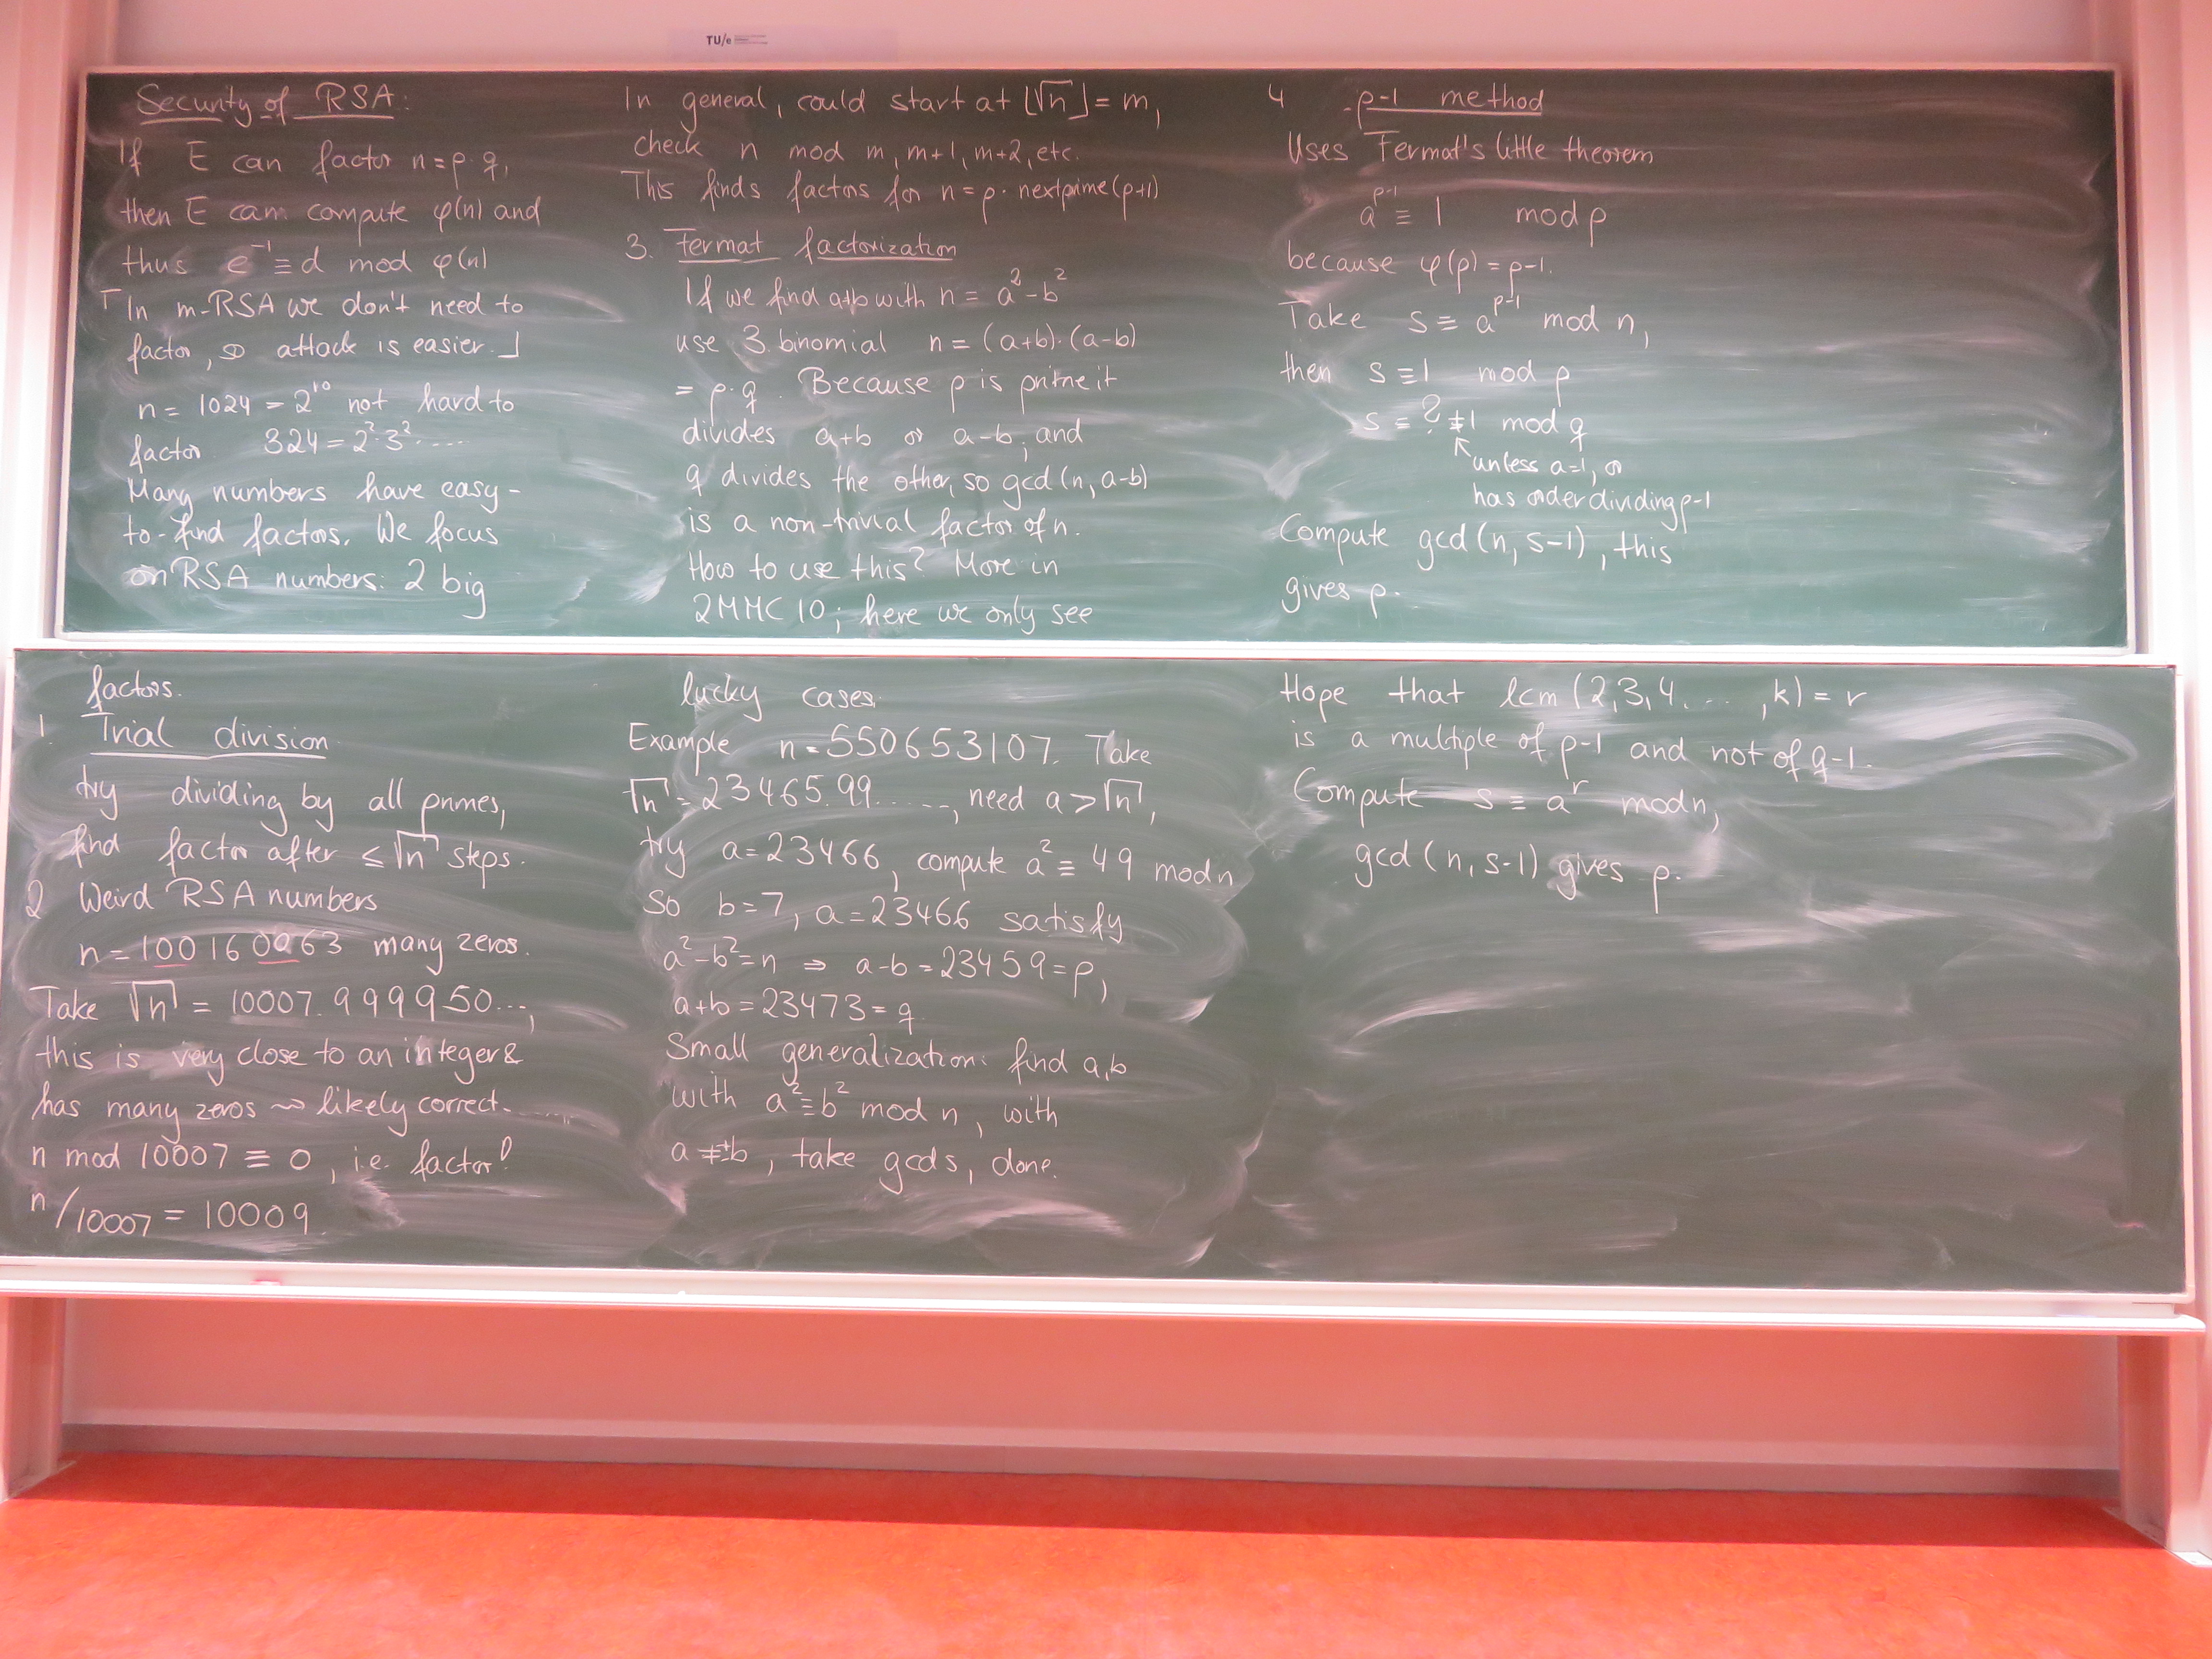 TU/e
Security of RSA:
If E can factor n=p·q,
then E can compute φ(n) and
thus e⁻¹≡d mod φ(n)
⌈In m-RSA we don't need to
factor, so attack is easier.⌋
n= 1024 = 2¹⁰ not hard to
factor 324=2²·3²·....
Many numbers have easy-
to-find factors. We focus
on RSA numbers: 2 big
factors.
1. Trial division
try dividing by all primes,
find factor after ≤√n steps.
2 Weird RSA numbers
n=100160063 many zeros.
Take √n = 10007.999950...,
this is very close to an integer &
has many zeros ⤳ likely correct.
n mod 10007 ≡ 0, i.e. factor!
n/10007 = 10009
In general, could start at ⌊√n⌋=m,
check n mod m, m+1, m+2, etc.
This finds factors for n=p·nextprime(p+1)
3. Fermat factorization
If we find a+b with n= a²-b²
use 3. binomial n=(a+b)·(a-b)
= p·q. Because p is prime it
divides a+b or a-b, and
q divides the other, so gcd(n, a-b)
is a non-trivial factor of n.
How to use this? More in
2MMC10; here we only see
lucky cases.
Example n=550653107. Take
√n=23465.99......, need a>√n,
try a=23466, compute a²≡49 mod n
So b=7, a=23466 satisfy
a²-b²=n ⇒ a-b=23459=p,
a+b=23473=q
Small generalization: find a,b
with a²≡b² mod n, with
a≠±b, take gcds, done.
4 p-1 method
Uses Fermat's little theorem
a^(p-1) ≡ 1 mod p
because φ(p)=p-1.
Take s≡a^(p-1) mod n,
then s≡1 mod p
s≡? ≢1 mod q
↖unless a=1, or
has order dividing p-1
Compute gcd(n, s-1), this
gives p.
Hope that lcm(2,3,4,...,k)=r
is a multiple of p-1 and not of q-1.
Compute s≡a^r mod n,
gcd(n, s-1) gives p.